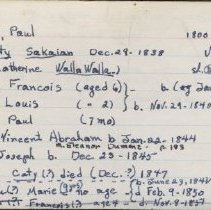 , Paul 1800
ty Sakaian Dec. 29-1838
atherine Walla Walla)
Francois (aged 6)
Louis ( " 2) b. Nov. 29-184
Paul (7 mo)
Vincent Abraham b Jan. 22-1844
m. Eleanor p. 193
Joseph b. Dec 23-1845
Caty (?) died (Dec. ?) 1847
(?) Marie (?) no age - b. June 23, 184
d Feb. 9-1850
(?) Francois (?) age 4 - d. Nov. 9-185